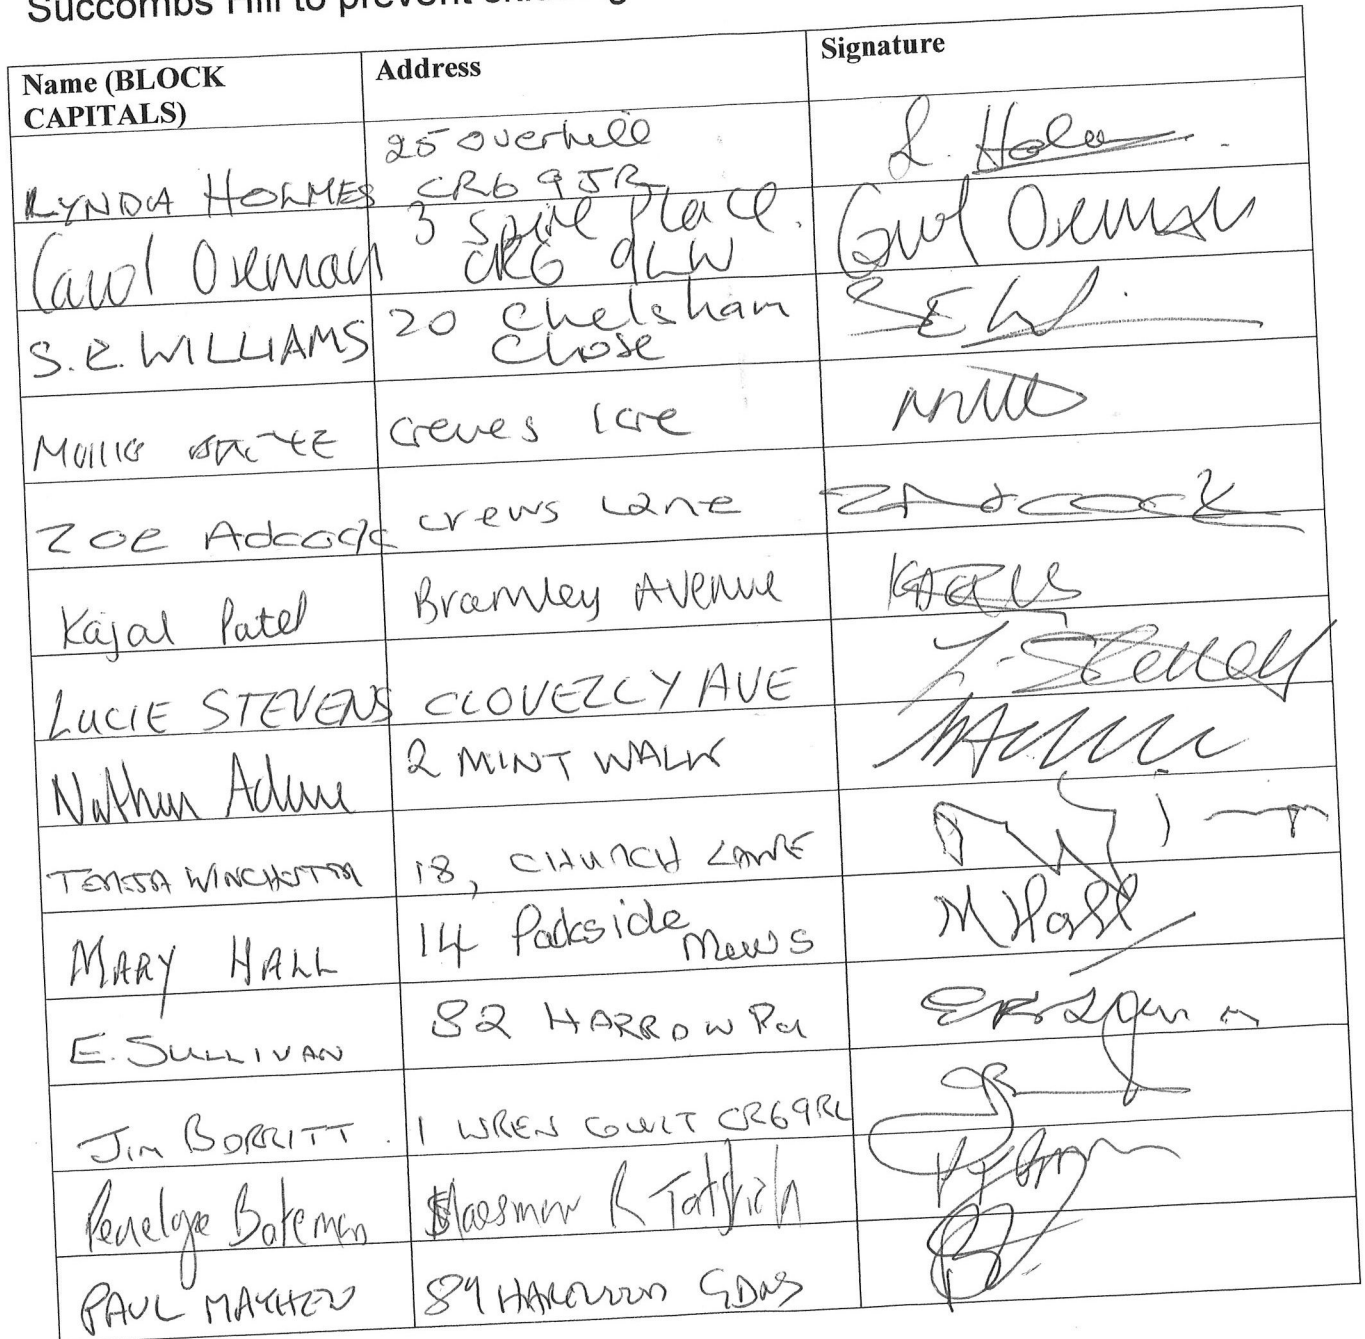 Succombs Hill to prevent
Name (BLOCK CAPITALS) Address Signature
LYNDA HOLMES 25 Overhill CR6 9JR L. Holmes
Carol Oxenham 3 Spire Place. CR6 9LW Carol
S.E. WILLIAMS 20 Chelsham Close S E W
Crewes
Zoe Adcock crews Lane Z Adcock
Kajal Patel Bramley Avenue
LUCIE STEVENS CLOVELLY AVE L. Stevens
Nathan 2 MINT WALK
TERESA WINCHESTER 18, CHURCH LANE
MARY HALL 14 Parkside Mews M Hall
E. SULLIVAN 82 HARROW Rd
JIM BORRITT. 1 WREN COURT CR69RL
Penelope Bateman R
PAUL MAYHEW 89 GDNS